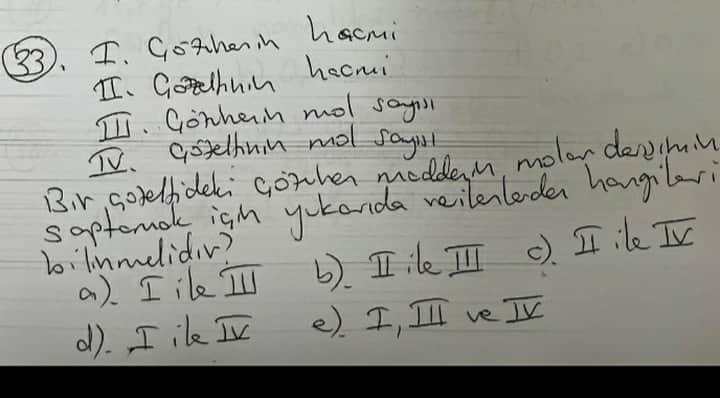 33. I. Çözücünün hacmi
II. Çözeltinin hacmi
III. Çözücünün mol sayısı
IV. Çözeltinin mol sayısı
Bir çözeltideki çözücü maddenin molar derişimini
saptamak için yukarıda verilenlerden hangileri
bilinmelidir?
a). I ile III b). II ile III c). II ile IV
d). I ile IV e). I, III ve IV